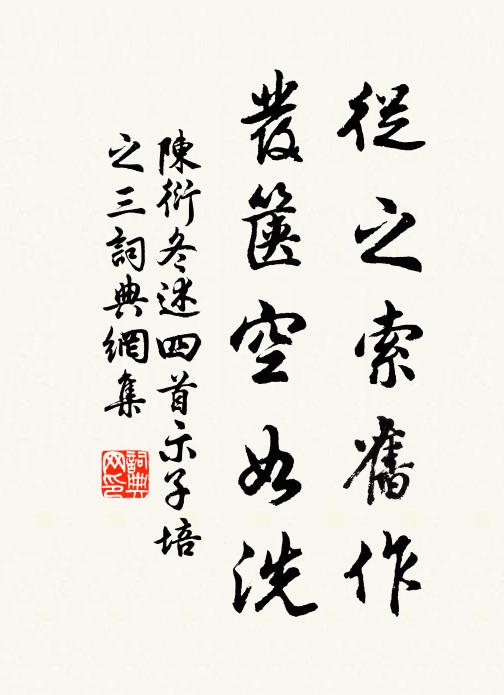 從之索舊作
發篋空如洗
陳衍冬述四首示子培
之三詞典網集
詞典网印